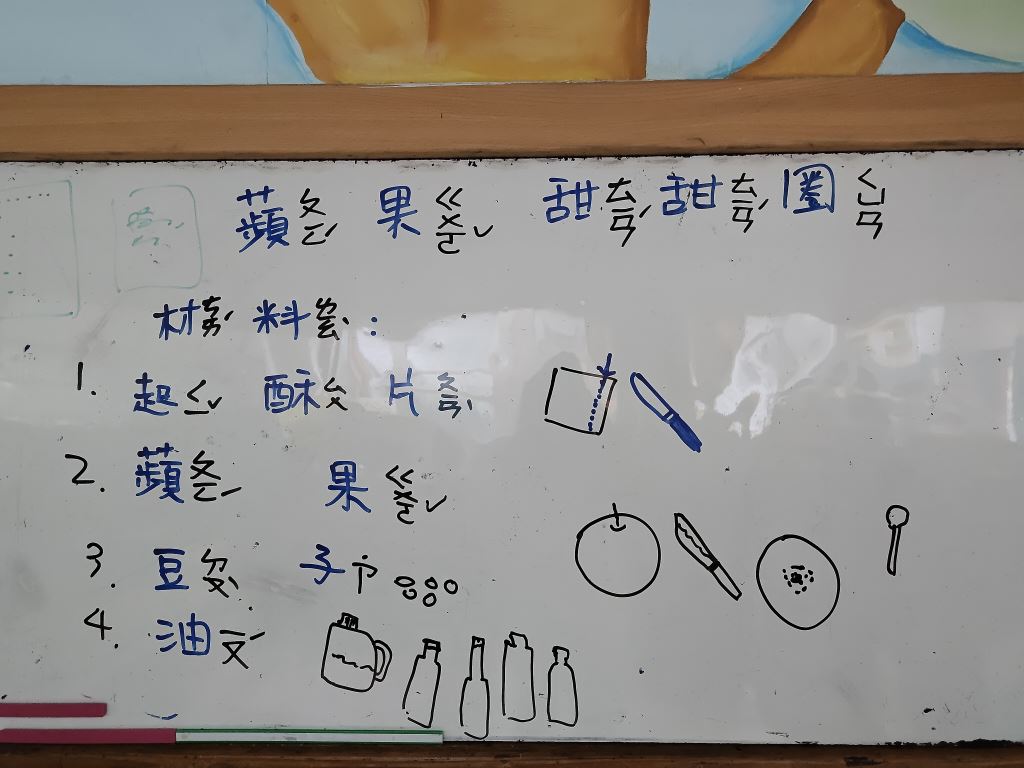 蘋ㄆㄧㄥˊ 果ㄍㄨㄛˇ 甜ㄊㄧㄢˊ 甜ㄊㄧㄢˊ 圈ㄑㄩㄢ
材ㄘㄞˊ 料ㄌㄧㄠˋ:
1. 起ㄑㄧˇ 酥ㄙㄨ 片ㄆㄧㄢˋ
2. 蘋ㄆㄧㄥˊ 果ㄍㄨㄛˇ
3. 豆ㄉㄡˋ 子˙ㄗ
4. 油ㄧㄡˊ